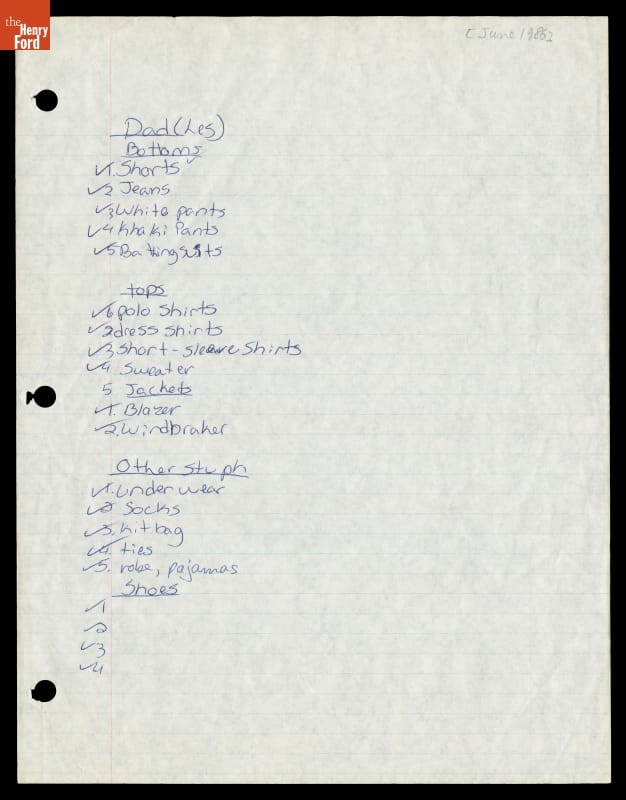 the
Henry
Ford
[June 1985]
Dad (Les)
Bottoms
✓1. Shorts
✓2 Jeans
✓3 White pants
✓4 Khaki Pants
✓5 Bathingsuits
tops
✓6 polo shirts
✓2 dress shirts
✓3 Short-sleeve Shirts
✓4 Sweater
5 Jackets
✓1. Blazer
✓2. Windbraker
Other stuph
✓1. Underwear
✓2 Socks
✓3. Kitbag
✓4. ties
✓5. robe, pajamas
Shoes
✓1
✓2
✓3
✓4